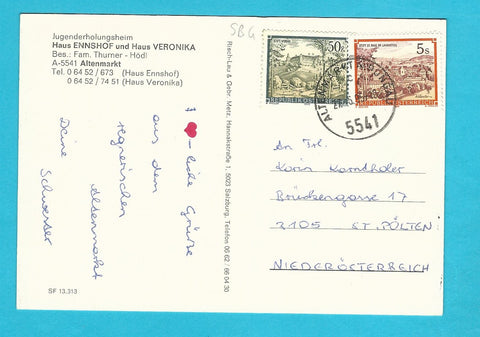 SBG
Jugenderholungsheim
Haus ENNSHOF und Haus VERONIKA
Bes.: Fam. Thurner - Hödl
A-5541 Altenmarkt
Tel. 0 64 52 / 673 (Haus Ennshof)
0 64 52 / 74 51 (Haus Veronika)
1 ❤-liche Grüße
aus dem
regnerischen
Altenmarkt
Deine
Schwester
SF 13.313
Risch-Lau & Gebr. Metz, Hanuschstraße 1, 5023 Salzburg, Telefon 06 62 / 66 04 30
50
STIFT VORAU
REPUBLIK ÖSTERREICH
5 S
REPUBLIK ÖSTERREICH
5541
An Frl.
Karin Kornthaler
Brücken­gasse 17
3105 ST. PÖLTEN
NIEDERÖSTERREICH